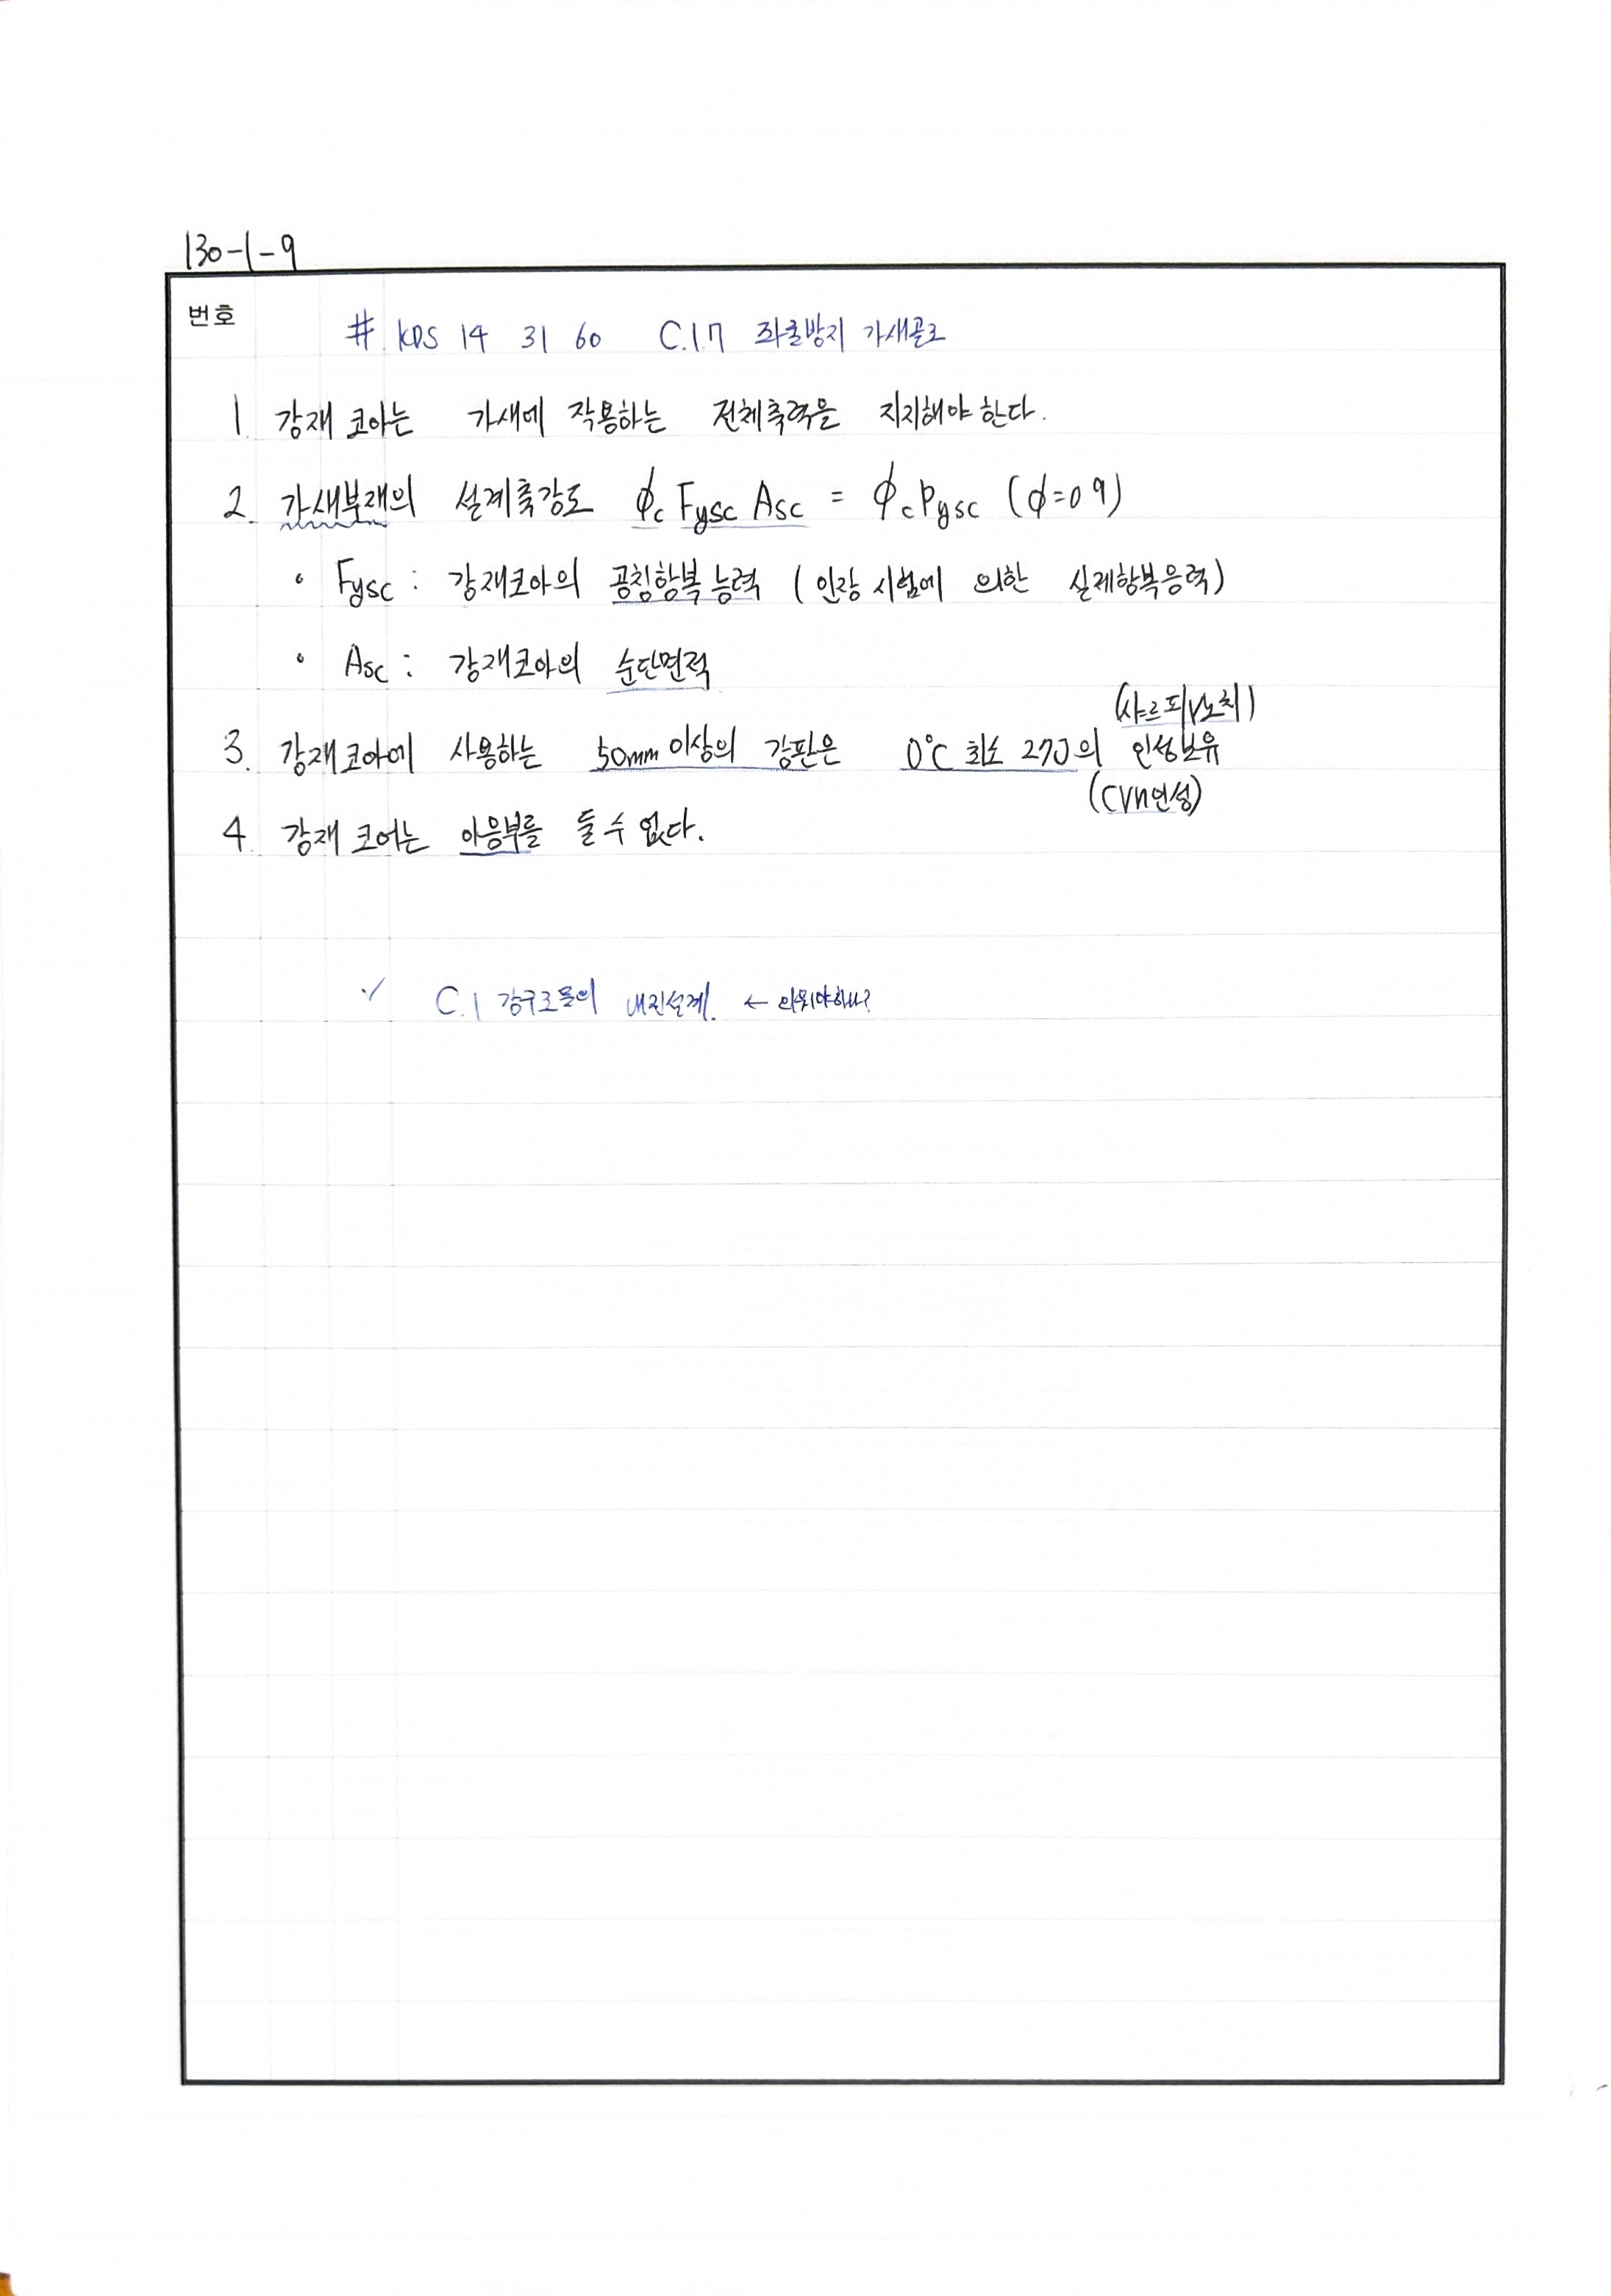 130-1-9
번호
# KDS 14 31 60 C.17 좌굴방지 가새골조
1. 강재 코아는 가새에 작용하는 전체축력을 지지해야 한다.
2. 가새부재의 설계축강도 ϕc Fysc Asc = ϕc Pysc (ϕ=0.9)
• Fysc : 강재코아의 공칭항복응력 (인장시험에 의한 실제항복응력)
• Asc : 강재코아의 순단면적
(샤르피V노치)
3. 강재코아에 사용하는 50mm 이상의 강판은 0℃ 최소 27J의 인성보유
(CVN인성)
4. 강재 코어는 이음부를 둘 수 없다.
✓ C.1 강구조물의 내진설계. ← 외워야하나?